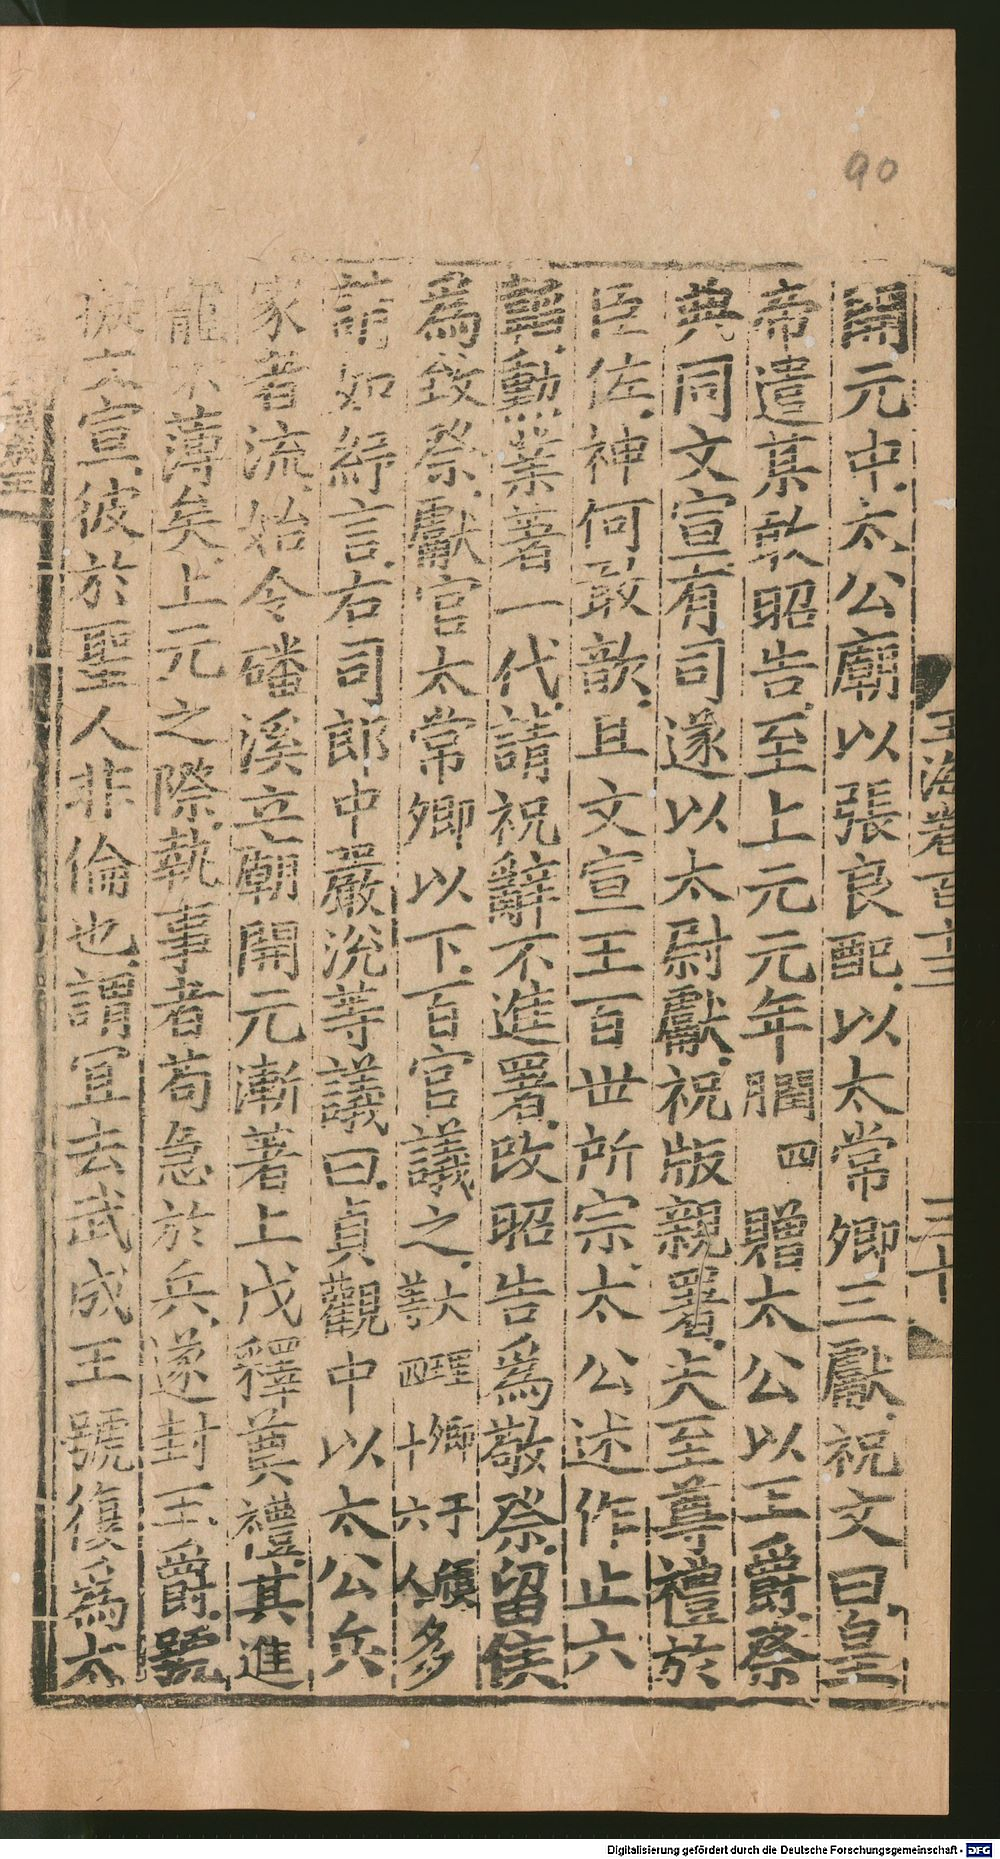 90
玉海卷百十三
三十
開元中太公廟以張良配以太常卿三獻祝文曰皇
帝遣某敢昭告至上元元年閏四贈太公以王爵祭
典同文宣有司遂以太尉獻祝版親署夫至尊禮於
臣佐神何敢歆且文宣王百世所宗太公述作止六
韜勳業著一代請祝辭不進署改昭告為敬祭留侯
為致祭獻官太常卿以下百官議之大理卿于頎等四十六人多
請如紓言右司郎中嚴涗等議曰貞觀中以太公兵
家者流始令磻溪立廟開元漸著上戊釋奠禮其進
寵不薄矣上元之際執事者苟急於兵遂封王爵號
擬文宣彼於聖人非倫也謂宜去武成王號復為太
Digitalisierung gefördert durch die Deutsche Forschungsgemeinschaft - DFG